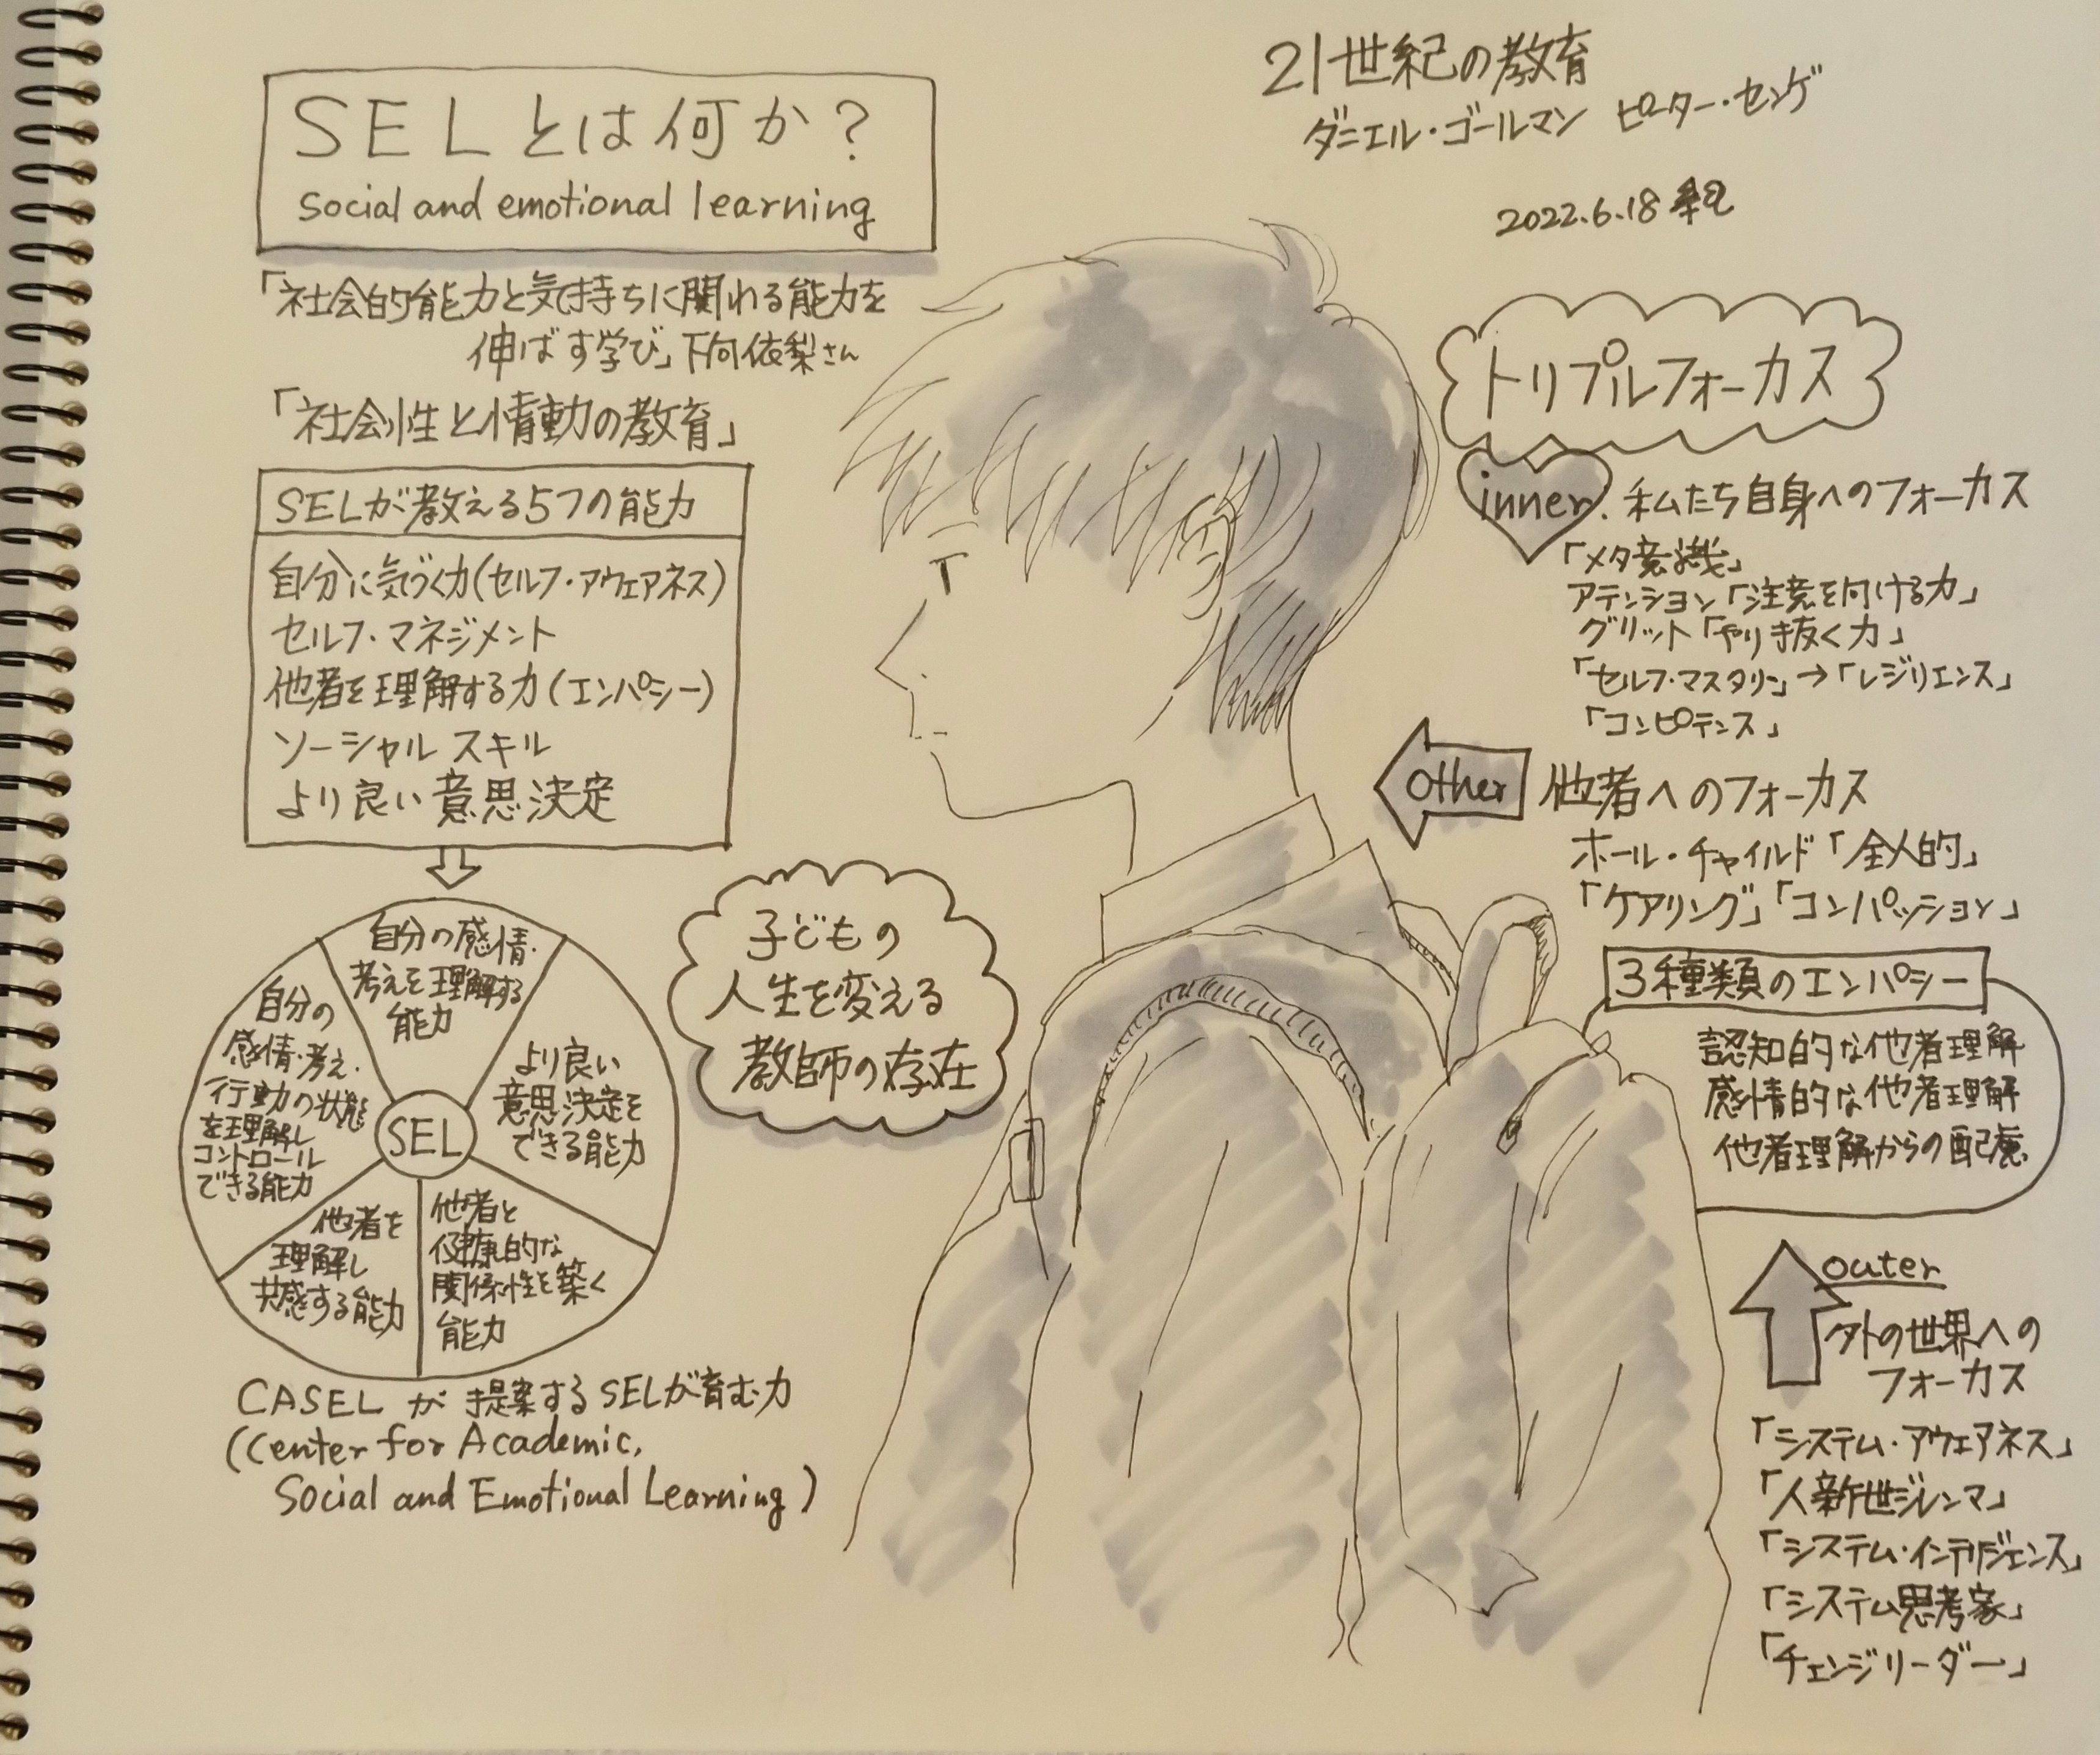 SELとは何か?
social and emotional learning
「社会的能力と気持ちに関わる能力を
伸ばす学び」下向依梨さん
「社会性と情動の教育」
SELが教える5つの能力
自分に気づく力(セルフ・アウェアネス)
セルフ・マネジメント
他者を理解する力(エンパシー)
ソーシャルスキル
より良い意思決定
自分の感情・
考えを理解する
能力
より良い
意思決定を
できる能力
他者と
健康的な
関係性を築く
能力
他者を
理解し
共感する能力
自分の
感情・考え・
行動の状態
を理解し
コントロール
できる能力
SEL
CASELが提案するSELが育む力
(Center for Academic,
Social and Emotional Learning)
子どもの
人生を変える
教師の存在
21世紀の教育
ダニエル・ゴールマン ピーター・センゲ
2022.6.18
トリプルフォーカス
inner. 私たち自身へのフォーカス
「メタ意識」
アテンション「注意を向ける力」
グリット「やり抜く力」
「セルフ・マスタリー」→「レジリエンス」
「コンピテンス」
other 他者へのフォーカス
ホール・チャイルド「全人的」
「ケアリング」「コンパッション」
3種類のエンパシー
認知的な他者理解
感情的な他者理解
他者理解からの配慮
outer
外の世界への
フォーカス
「システム・アウェアネス」
「人新世ジレンマ」
「システム・インテリジェンス」
「システム思考家」
「チェンジリーダー」